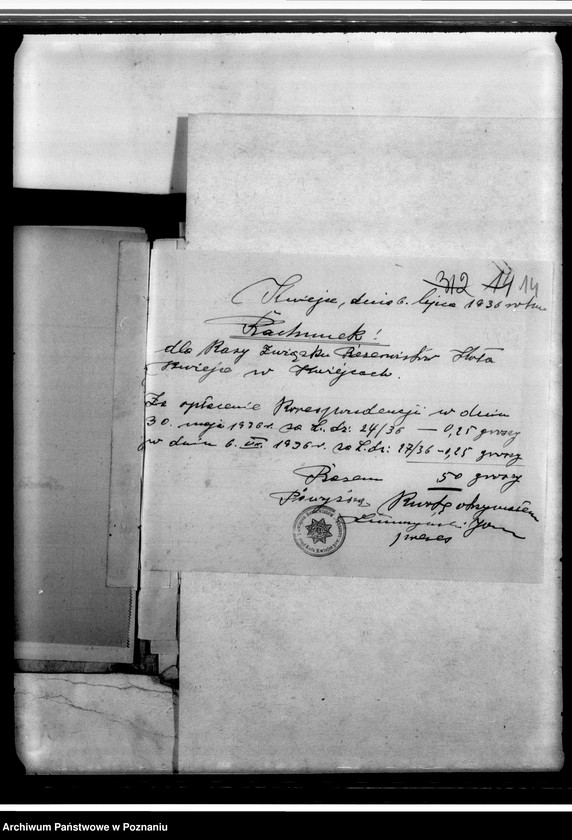 312 14 14
Kwiejce, dnia 6. lipca 1936 roku
Rachunek!
dla Kasy Związku Rezerwistów Koła
Kwiejce w Kwiejcach.
Za opłacenie Korespondencji w dniu
30. maja 1936 r. za L. dz: 24/36 — 0,25 groszy
w dniu 6. VII. 1936 r. za L. dz: 27/36 - 0,25 groszy
Razem 50 groszy
Powyższą Kwotę otrzymałem
prezes
Archiwum Państwowe w Poznaniu